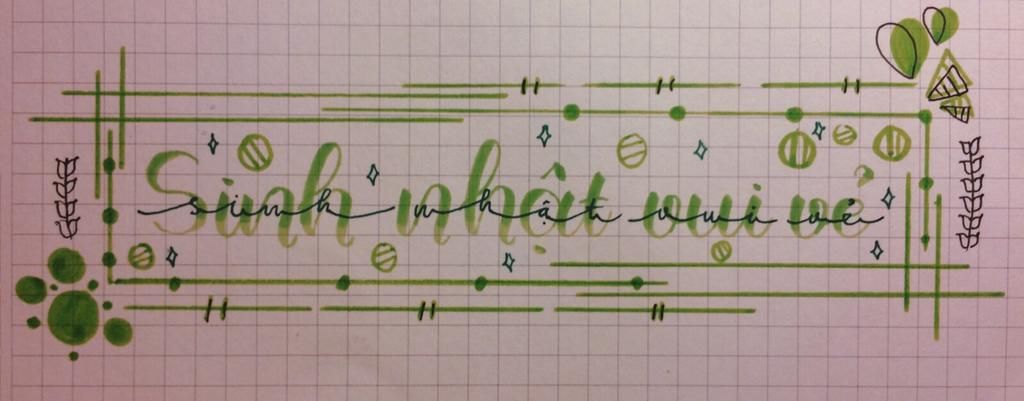 Sinh nhật vui vẻ
sinh nhật vui vẻ